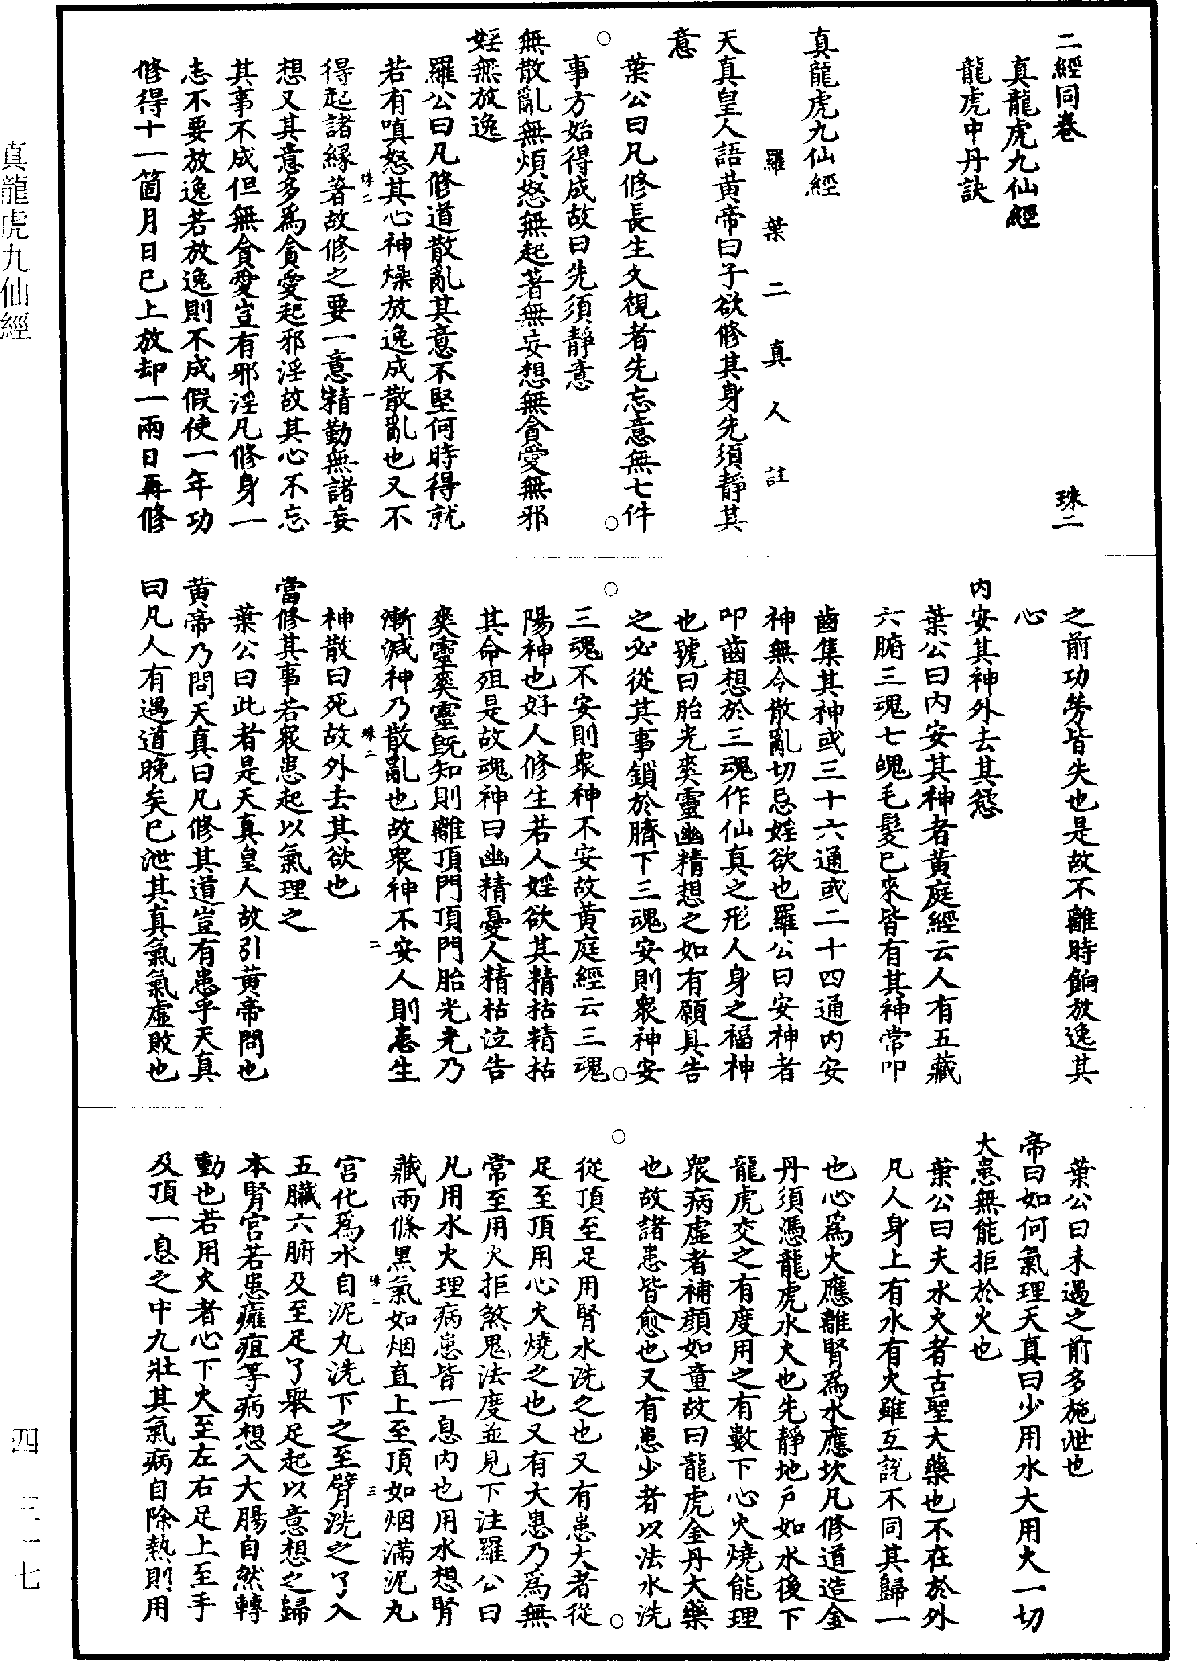 二經同卷
珠二
真龍虎九仙經
龍虎中丹訣
真龍虎九仙經
羅葉二真人註
天真皇人語黃帝曰子欲修其身先須靜其
意
葉公曰凡修長生久視者先忘意無七件
事方始得成故曰先須靜意
無散亂無煩怒無起著無妄想無貪愛無邪
婬無放逸
羅公曰凡修道散亂其意不堅何時得就
若有嗔怒其心神燥放逸成散亂也又不
珠二
一
得起諸緣著故修之要一意精勤無諸妄
想又其意多為貪愛起邪淫故其心不忘
其事不成但無貪愛豈有邪淫凡修身一
志不要放逸若放逸則不成假使一年功
修得十一箇月日已上放却一兩日再修
之前功勞皆失也是故不離時餉放逸其
心
內安其神外去其慾
葉公曰內安其神者黃庭經云人有五藏
六腑三魂七魄毛髮已來皆有其神常叩
齒集其神或三十六通或二十四通內安
神無令散亂切忌婬欲也羅公曰安神者
叩齒想於三魂作仙真之形人身之福神
也號曰胎光爽靈幽精想之如有願具告
之必從其事鎖於臍下三魂安則衆神安
三魂不安則衆神不安故黃庭經云三魂
陽神也好人修生若人婬欲其精枯精枯
其命殂是故魂神曰幽精憂人精枯泣告
爽靈爽靈既知則離頂門頂門胎光光乃
漸減神乃散亂也故衆神不安人則恙生
珠二
二
神散曰死故外去其欲也
當修其事若衆患起以氣理之
葉公曰此者是天真皇人故引黃帝問也
黃帝乃問天真曰凡修其道豈有患乎天真
曰凡人有遇道晚矣已泄其真氣氣虛敗也
葉公曰未遇之前多施泄也
帝曰如何氣理天真曰少用水大用火一切
大患無能拒於火也
葉公曰夫水火者古聖大藥也不在於外
凡人身上有水有火雖互說不同其歸一
也心為火應離腎為水應坎凡修道造金
丹須憑龍虎水火也先靜地戶如水後下
龍虎交之有度用之有數下心火燒能理
衆病虛者補顏如童故曰龍虎金丹大藥
也故諸患皆愈也又有患少者以法水洗
從頂至足用腎水洗之也又有患大者從
足至頂用心火燒之也又有大患乃為無
常至用火拒煞鬼法度並見下注羅公曰
凡用水火理病患皆一息內也用水想腎
藏兩條黑氣如烟直上至頂如烟滿泥丸
珠二
三
宮化為水自泥丸洗下之至臂洗之了入
五臟六腑及至足了舉足起以意想之歸
本腎宮若患癰疽等病想入大腸自然轉
動也若用火者心下火至左右足上至手
及頂一息之中九壯其氣病自除熱則用
真龍虎九仙經
四
三一七